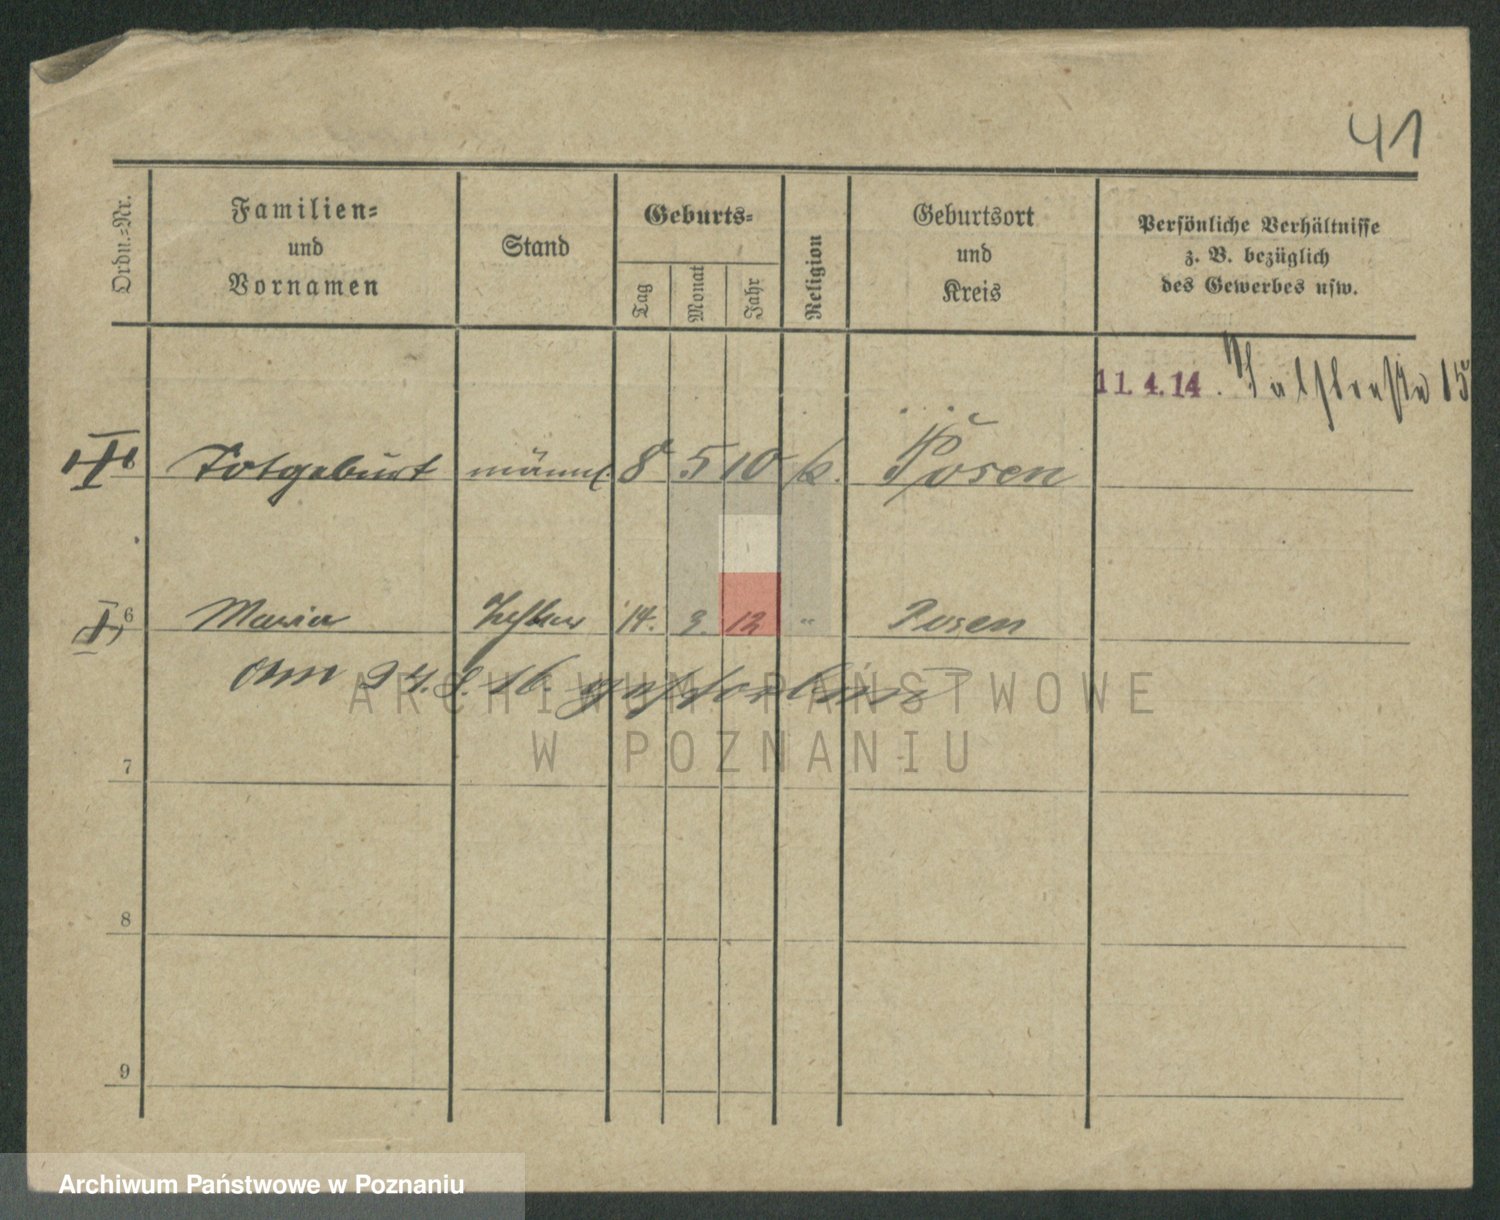 41
Ordn.=Nr.
Familien=
und
Vornamen
Stand
Geburts=
Tag
Monat
Jahr
Religion
Geburtsort
und
Kreis
Persönliche Verhältnisse
z. B. bezüglich
des Gewerbes usw.
11.4.14. 15
Totgeburt männl. 8 5 10 k. Posen
6 Maria Tochter 14. 9. 12 " Posen
Am 24. 9. 16. gestorben
ARCHIWUM PAŃSTWOWE
W POZNANIU
7
8
9
Archiwum Państwowe w Poznaniu